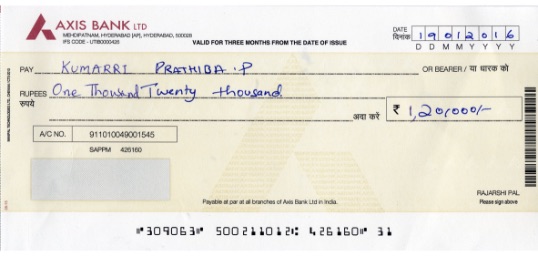 AXIS BANK LTD
MEHDIPATNAM, HYDERABAD [AP], HYDERABAD, 500028
IFS CODE - UTIB0000426
VALID FOR THREE MONTHS FROM THE DATE OF ISSUE
DATE दिनांक 19012016
D D M M Y Y Y Y
PAY KUMARRI PRATHIBA .P OR BEARER / या धारक को
RUPEES रुपये One Thousand Twenty thousand
अदा करें ₹ 1,20,000/-
A/C NO. 911010049001545
SAPPM 426160
Payable at par at all branches of Axis Bank Ltd in India.
RAJARSHI PAL
Please sign above
⑈309063⑈ 500211012⑆ 426160⑈ 31